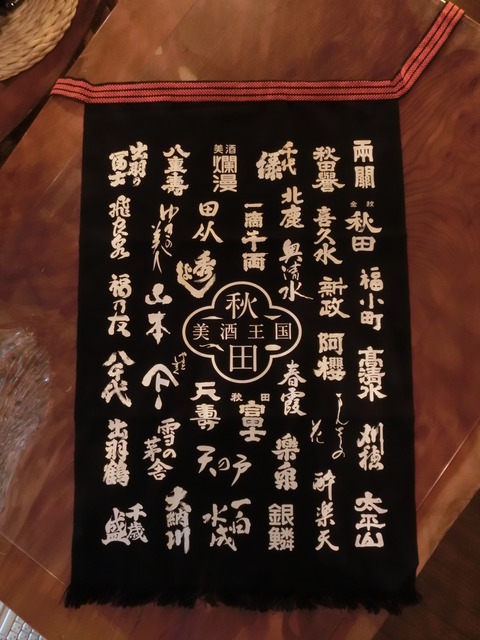 兩關
金紋
秋田
福小町
高清水
刈穂
太平山
秋田誉
喜久水
新政
阿櫻
まんさくの花
酔楽天
千代緑
北鹿
奥清水
春霞
樂泉
銀鱗
美酒
爛漫
一滴千両
秋田
美酒王国
秋田
富士
一白水成
田从
秀よし
天壽
天の戸
八重壽
ゆきの美人
山本
雪の茅舎
大納川
出羽の冨士
飛良泉
福乃友
八千代
出羽鶴
千歳盛